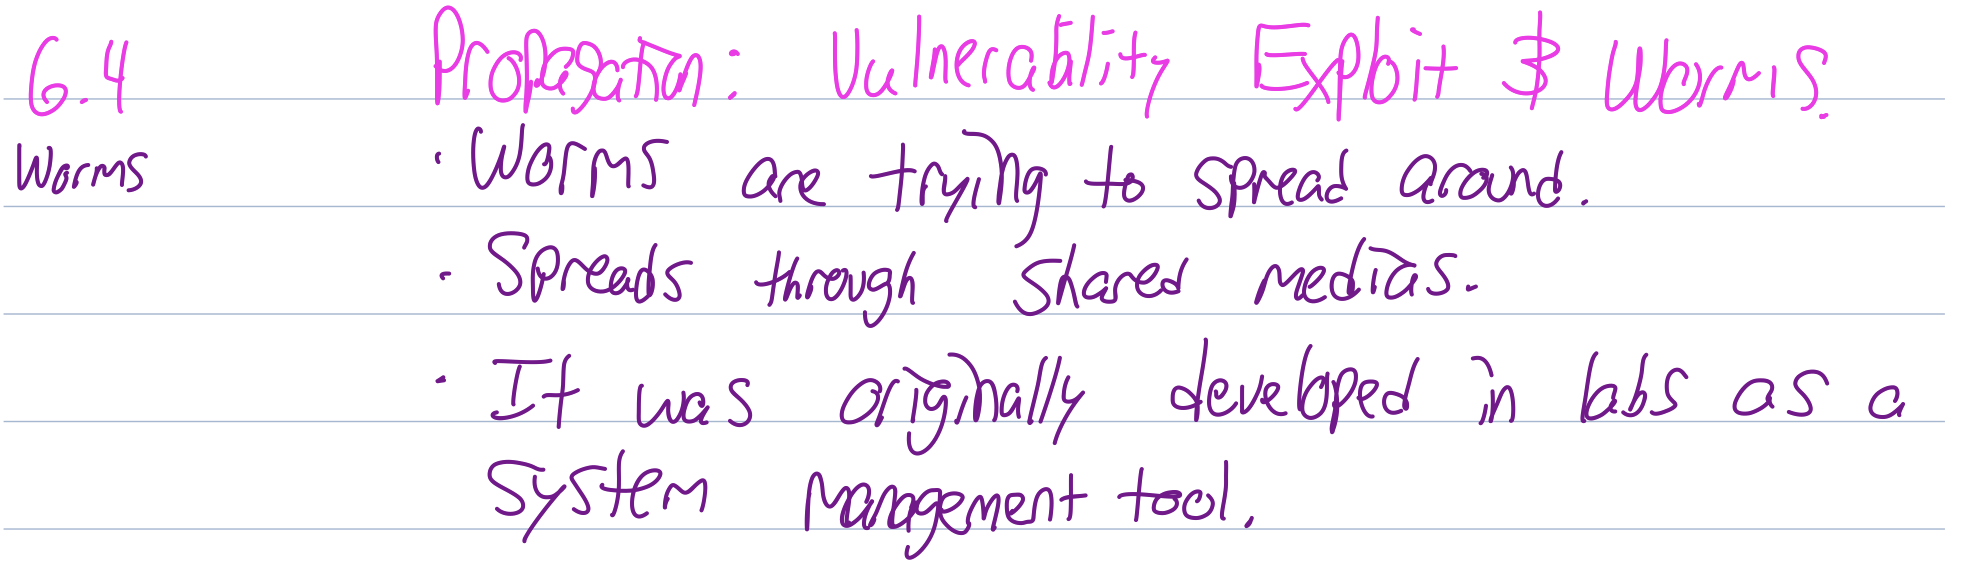 6.4 Propagation: Vulnerability Exploit & Worms.
Worms · Worms are trying to spread around.
· Spreads through shared medias.
· It was originally developed in labs as a
system management tool.